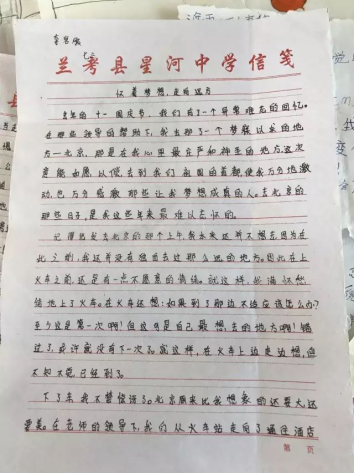 兰考县星河中学信笺
怀着梦想,走向远方
去年的十一国庆节,我们有了一个非常难忘的回忆。
在那些领导的帮助下,我去那了一个梦寐以求的地
方—北京,那是在我心里最庄严和神圣的地方。这次
意能如愿,从使去到我们祖国的首都使我万分地激
动,也万分感激那些让我梦想成真的人。去北京的
那些日子,是我这些年来最难以忘怀的。
记得当发去北京的那个上午,我本来还并不想去因为在
此之前,我还并没有独自去过那么远的地方。因此在上
火车之前,还是有一点不愿意的情绪。就这样,
地上了火车。在火车还想:如果到了那边不适应该怎么办?
至今这是第一次啊!但这可是自己最想去的地方啊!错
过了,或许就没有下一次了。就这样,在火车上边走边想,但
不知不觉,已经到了。
下了车,我不禁惊讶了。北京原来比我想象的还要大,还
要美。在老师的领导下,我们从火车站走向了通往酒店
第 页